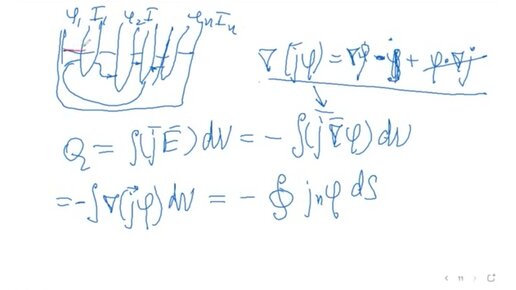 φ₁ I₁ φ₂ I φₙ Iₙ
∇(j̄φ) = ∇φ · j̄ + φ·∇j̄
Q = ∫(j̄ Ē) dV = − ∫(j̄ ∇̄φ) dV
= −∫ ∇(j̄φ) dV = − ∮ jₙφ dS
11